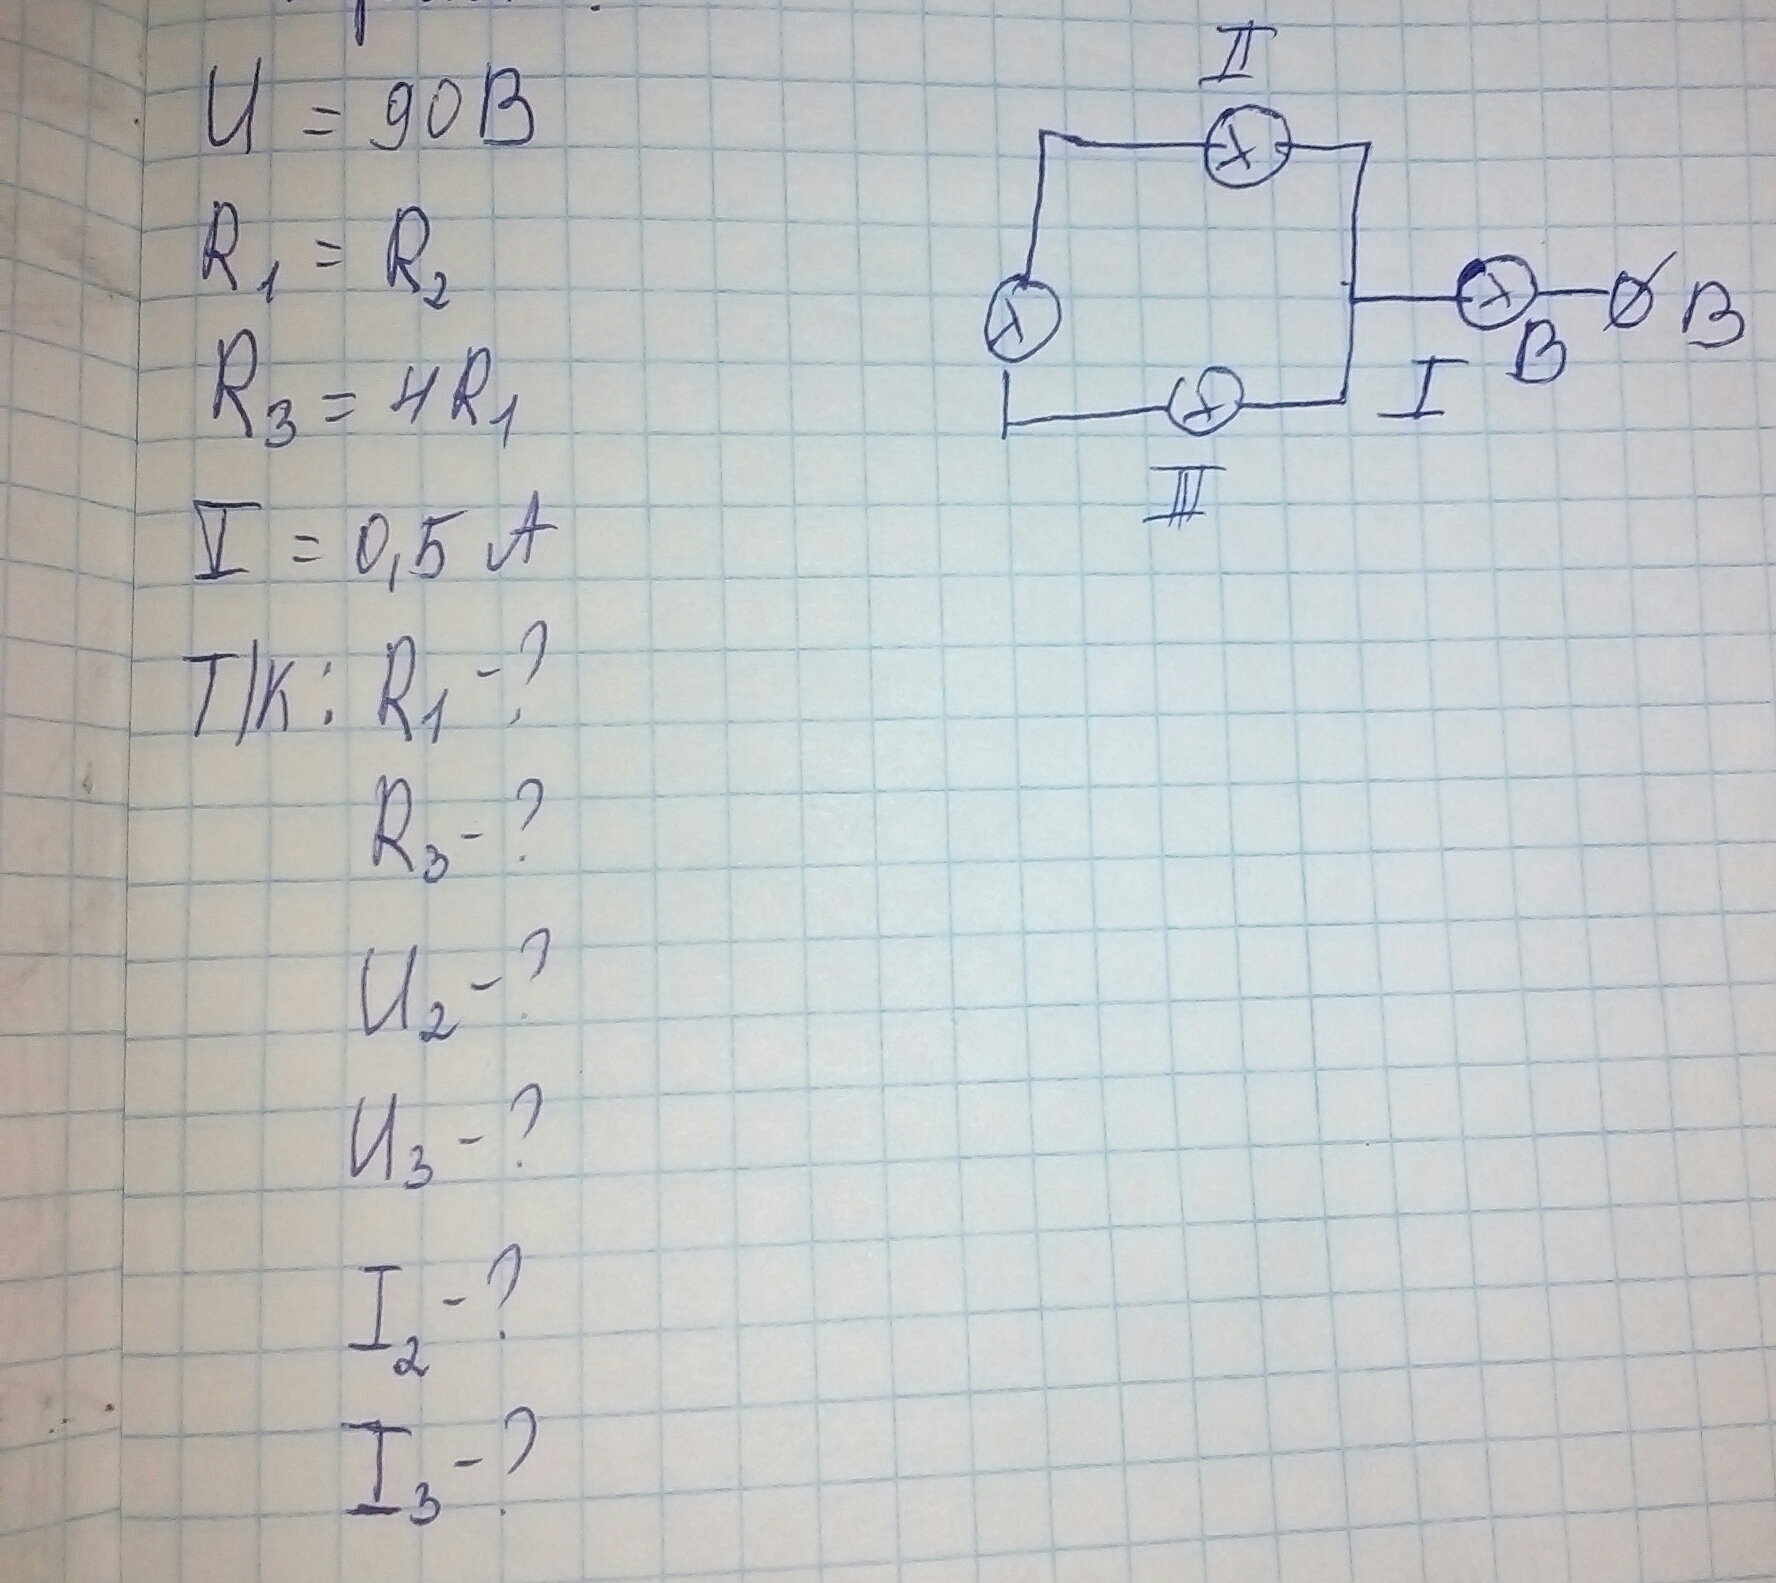 U = 90В
R1 = R2
R3 = 4R1
I = 0,5 А
Т/К: R1 - ?
R3 - ?
U2 - ?
U3 - ?
I2 - ?
I3 - ?
II
В
В
I
III